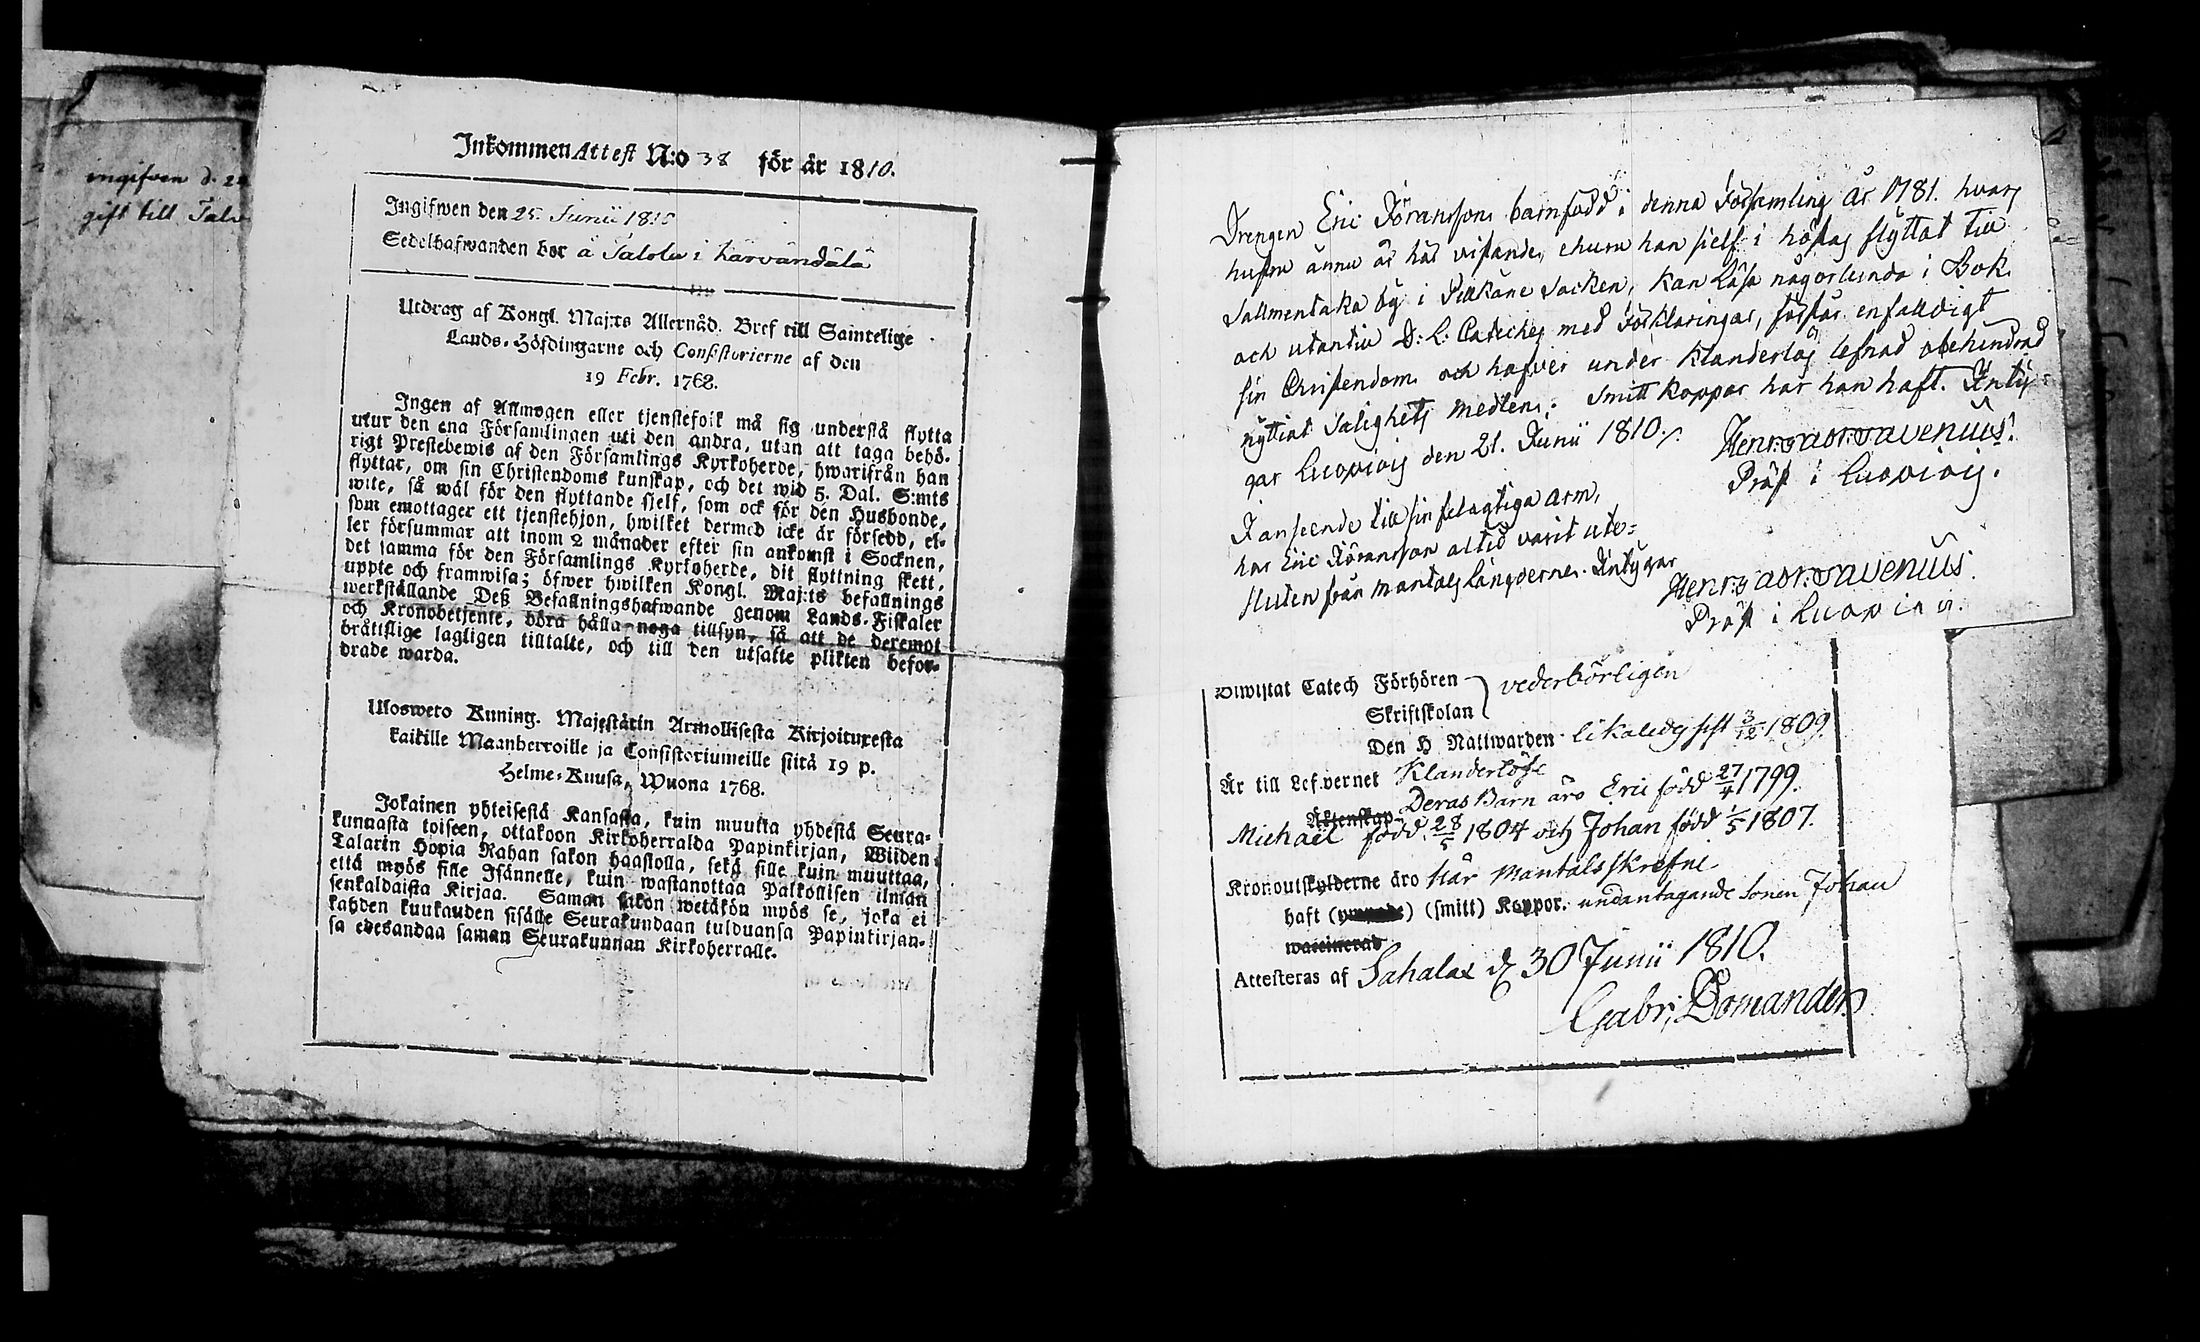 ingifven d. 2
gift till Talv
Inkommen Attest N:o 38 för år 1810.
Ingifwen den 25 Junii 1810
Sedelhafwanden bor å Salola i harvandala
Utdrag af Kongl. Maj:ts Allernåd. Bref till Samtelige
Lands-Höfdingarne och Consistorierne af den
19 Febr. 1768.
Ingen af Allmogen eller tjenstefolk må sig understå flytta
utur den ena Församlingen uti den andra, utan att taga behö-
rigt Prestebewis af den Församlings Kyrkoherde, hwarifrån han
flyttar, om sin Christendoms kunskap, och det wid 5. Dal. S:mts
wite, så wäl för den flyttande sjelf, som ock för den Husbonde,
som emottager ett tjenstehjon, hwilket dermed icke är försedd, el-
ler försummar att inom 2 månader efter sin ankomst i Socknen,
det samma för den Församlings Kyrkoherde, dit flyttning skett,
uppte och framwisa; öfwer hwilken Kongl. Maj:ts befallnings
werkställande Deß Befallningshafwande genom Lands-Fiskaler
och Kronobetjente, böra hålla noga tillsyn, så att de deremot
bråttslige lagligen tilltalte, och till den utsatte plikten befor-
drade warda.
Ulosweto Kuning. Majestätin Armollisesta Kirjoituxesta
kaikille Maanherroille ja Consistoriumeille siitä 19 p.
Helme-Kuusa, Wuona 1768.
Jokainen yhteisestä Kansasta, kuin muutta yhdestä Seura-
kunnasta toiseen, ottakoon Kirkoherralda Papinkirjan, Wiiden
Talarin Hopia Rahan sakon haastolla, sekä sille kuin muuttaa,
että myös sille Isännelle, kuin wastanottaa Palkollisen ilman
senkaldaista Kirjaa. Saman sakon wetäkön myös se, joka ei
kahden kuukauden sisälle Seurakundaan tulduansa Papinkirjan-
sa edesandaa saman Seurakunnan Kirkoherralle.
Drengen Eric Jöransson barnfödd i denna Församling År 1781. hvars
hustru ännu är här vistande, ehuru han sielf i höstas flyttat till
Sallmentaka by i Pälkäne Socken, kan läsa någorlunda i Bok
och utantill D: L: Cateches med Förklaringar, förstår enfalldigt
sin Christendom och hafver under klanderlös lefnad obehindrad
nyttiat Salighets medlen; Smitt koppor har han haft. Inty=
gar Luopiois den 21. Junii 1810.
Henr: Adr: Davenius.
Pröst i Luopiois.
I anseende till sin felagtiga arm,
har Eric Jöransson altid varit ute=
sluten från mantals längderne. Intygar
Henr: Adr: Davenius
Pröst i Luopiois.
Biwistat Catech Förhören
Skriftskolan } vederbörligen
Den H Nattwarden likaledes sist 3/12 1809.
Är till Lefwernet Klanderlöse
Äktenskap Deras Barn äro Eric född 27/4 1799.
Michaël född 28/5 1804 och Johan född 1/5 1807.
Kronoutskylderne äro här Mantalsskrefne
haft (smitt) Koppor. undantagande Sonen Johan
waccinerad
Attesteras af Sahalax d. 30 Junii 1810.
Gabr: Domander